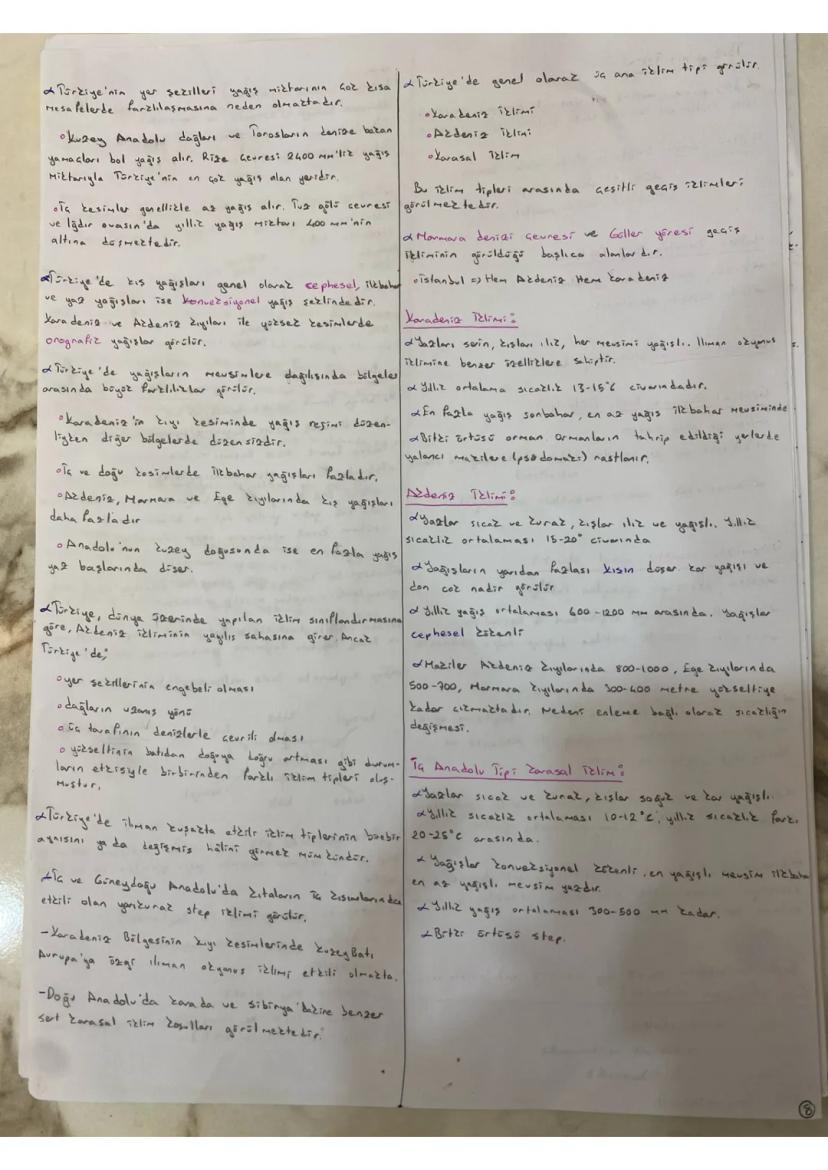 αTürkiye'nin yer şekilleri yağış miktarının çok kısa
mesafelerde farklılaşmasına neden olmaktadır.
°Kuzey Anadolu dağları ve Torosların denize bakan
yamaçları bol yağış alır. Rize çevresi 2400 mm'lik yağış
miktarıyla Türkiye'nin en çok yağış alan yeridir.
°İç kesimler genellikle az yağış alır. Tuz gölü çevresi
ve Iğdır ovasın'da yıllık yağış miktarı 400 mm'nin
altına düşmektedir.
αTürkiye'de kış yağışları genel olarak cephesel, ilkbahar
ve yaz yağışları ise konveksiyonel yağış şeklindedir.
Karadeniz ve Akdeniz kıyıları ile yüksek kesimlerde
orografik yağışlar görülür.
αTürkiye'de yağışların mevsimlere dağılışında bölgeler
arasında büyük farklılıklar görülür.
°Karadeniz'in kıyı kesiminde yağış rejimi düzen-
liyken diğer bölgelerde düzensizdir.
°İç ve doğu kesimlerde ilkbahar yağışları fazladır.
°Akdeniz, Marmara ve Ege kıyılarında kış yağışları
daha fazladır
°Anadolu'nun kuzey doğusunda ise en fazla yağış
yaz başlarında düşer.
αTürkiye, dünya üzerinde yapılan iklim sınıflandırmasına
göre, Akdeniz ikliminin yayılış sahasına girer. Ancak
Türkiye'de;
°yer şekillerinin engebeli olması
°dağların uzanış yönü
°üç tarafının denizlerle çevrili olması
°yükseltinin batıdan doğuya doğru artması gibi durum-
ların etkisiyle birbirinden farklı iklim tipleri oluş-
muştur.
αTürkiye'de ılıman kuşakta etkili iklim tiplerinin birebir
aynısını ya da değişmiş hâlini görmek mümkündür.
αİç ve Güneydoğu Anadolu'da kıtaların iç kısımlarında
etkili olan yarıkurak step iklimi görülür.
-Karadeniz Bölgesinin kıyı kesimlerinde kuzeyBatı
Avrupa'ya özgü ılıman okyanus iklimi etkili olmakta.
-Doğu Anadolu'da kanada ve sibirya'dakine benzer
sert karasal iklim koşulları görülmektedir.
αTürkiye'de genel olarak üç ana iklim tipi görülür.
°Karadeniz iklimi
°Akdeniz iklimi
°Karasal iklim
Bu iklim tipleri arasında çeşitli geçiş iklimleri
görülmektedir.
αMarmara denizi çevresi ve Göller yöresi geçiş
ikliminin görüldüğü başlıca alanlardır.
°İstanbul => Hem Akdeniz Hem karadeniz
Karadeniz İklimi:
αYazları serin, kışları ılık, her mevsimi yağışlı. Ilıman okyanus
iklimine benzer özelliklere sahiptir.
αYıllık ortalama sıcaklık 13-15°C civarındadır.
αEn fazla yağış sonbahar, en az yağış ilkbahar mevsiminde.
αBitki örtüsü orman. Ormanların tahrip edildiği yerlerde
yalancı makilere (psödomaki) rastlanır.
Akdeniz İklimi:
αYazlar sıcak ve kurak, kışlar ılık ve yağışlı. Yıllık
sıcaklık ortalaması 15-20° civarında
αYağışların yarıdan fazlası kışın düşer kar yağışı ve
don çok nadir görülür
αYıllık yağış ortalaması 600-1200 mm arasında. Yağışlar
cephesel kökenli
αMakiler Akdeniz kıyılarında 800-1000, Ege kıyılarında
500-700, Marmara kıyılarında 300-400 metre yükseltiye
kadar çıkmaktadır. Nedeni enleme bağlı olarak sıcaklığın
değişmesi.
İç Anadolu Tipi karasal iklim:
αYazlar sıcak ve kurak, kışlar soğuk ve kar yağışlı.
αYıllık sıcaklık ortalaması 10-12°C, yıllık sıcaklık farkı
20-25°C arasında.
αYağışlar konveksiyonel kökenli, en yağışlı mevsim ilkbahar
en az yağışlı mevsim yazdır.
αYıllık yağış ortalaması 300-500 mm kadar.
αBitki örtüsü step.
8